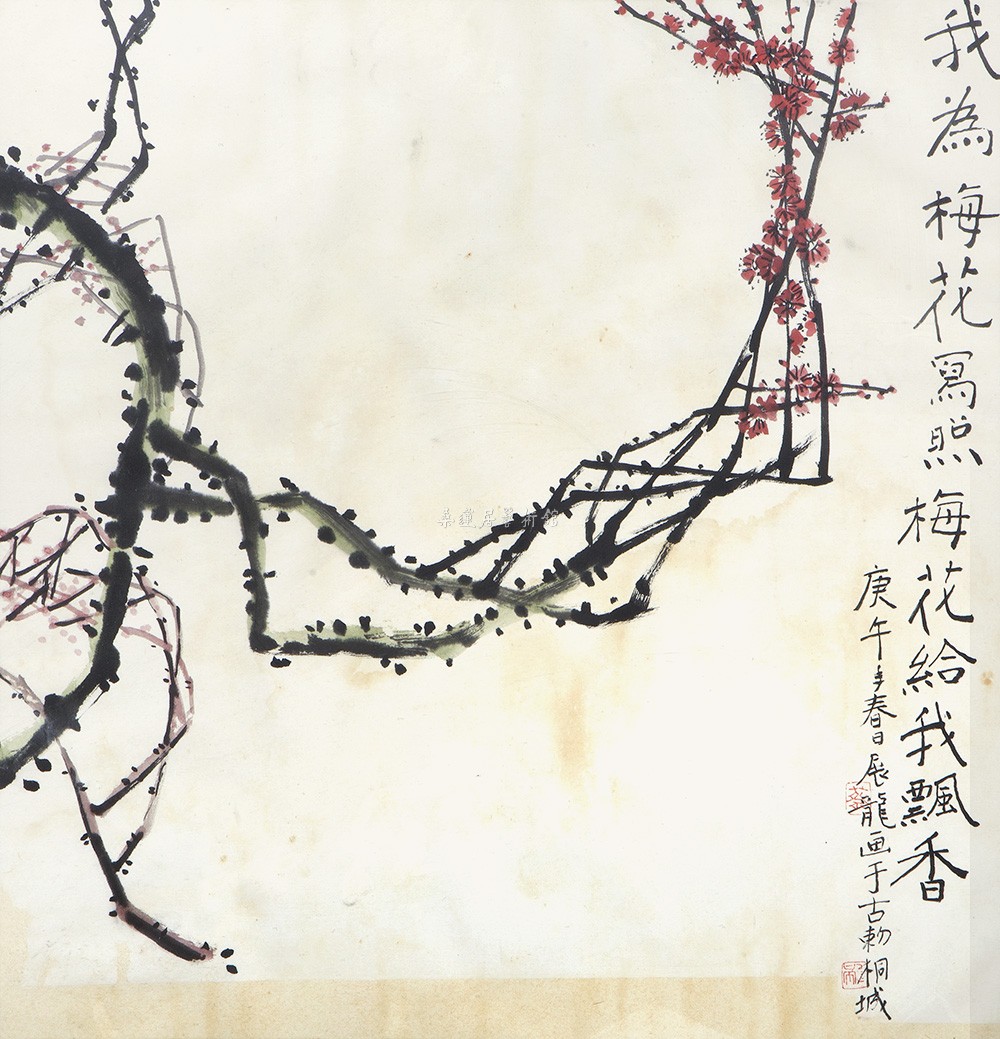 我為梅花寫照梅花給我飄香
庚午年春日展龍画于古勅桐城
桑蓮居藝術館